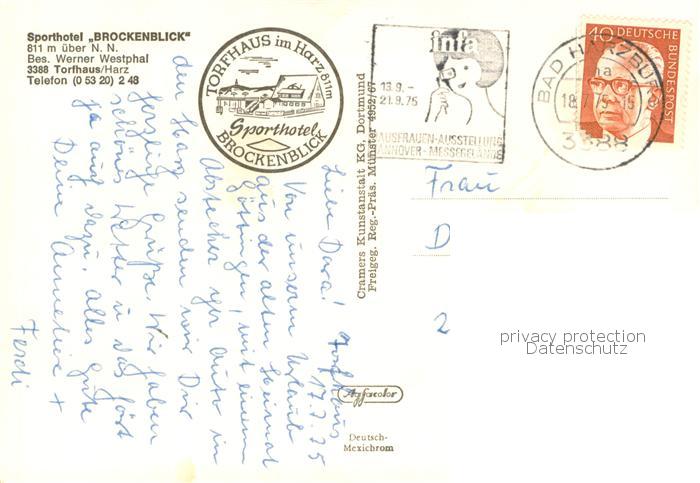 Sporthotel „BROCKENBLICK"
811 m über N. N.
Bes. Werner Westphal
3388 Torfhaus/Harz
Telefon (0 53 20) 2 48
TORFHAUS im Harz 811m
Sporthotel
BROCKENBLICK
infa
13.9. -
21.9.75
HAUSFRAUEN-AUSSTELLUNG
HANNOVER - MESSEGELÄNDE
BAD HARZBURG
18.7.75-15
3388
40 DEUTSCHE
BUNDESPOST
Torfhaus
17.7.75
Liebe Dora!
Von unserm Urlaub
aus der alten Heimat
Göttingen, mit einem
Abstecher per Auto in
den Harz senden wir Dir
herzliche Grüße. Wir haben
schönes Wetter u. das hört
ja auch dazu. Alles Gute
Deine Annelise +
Ferdi
Cramers Kunstanstalt KG, Dortmund
Freigeg. Reg.-Präs. Münster 4952/67
Agfacolor
Deutsch-
Mexichrom
Frau
D
2
privacy protection
Datenschutz